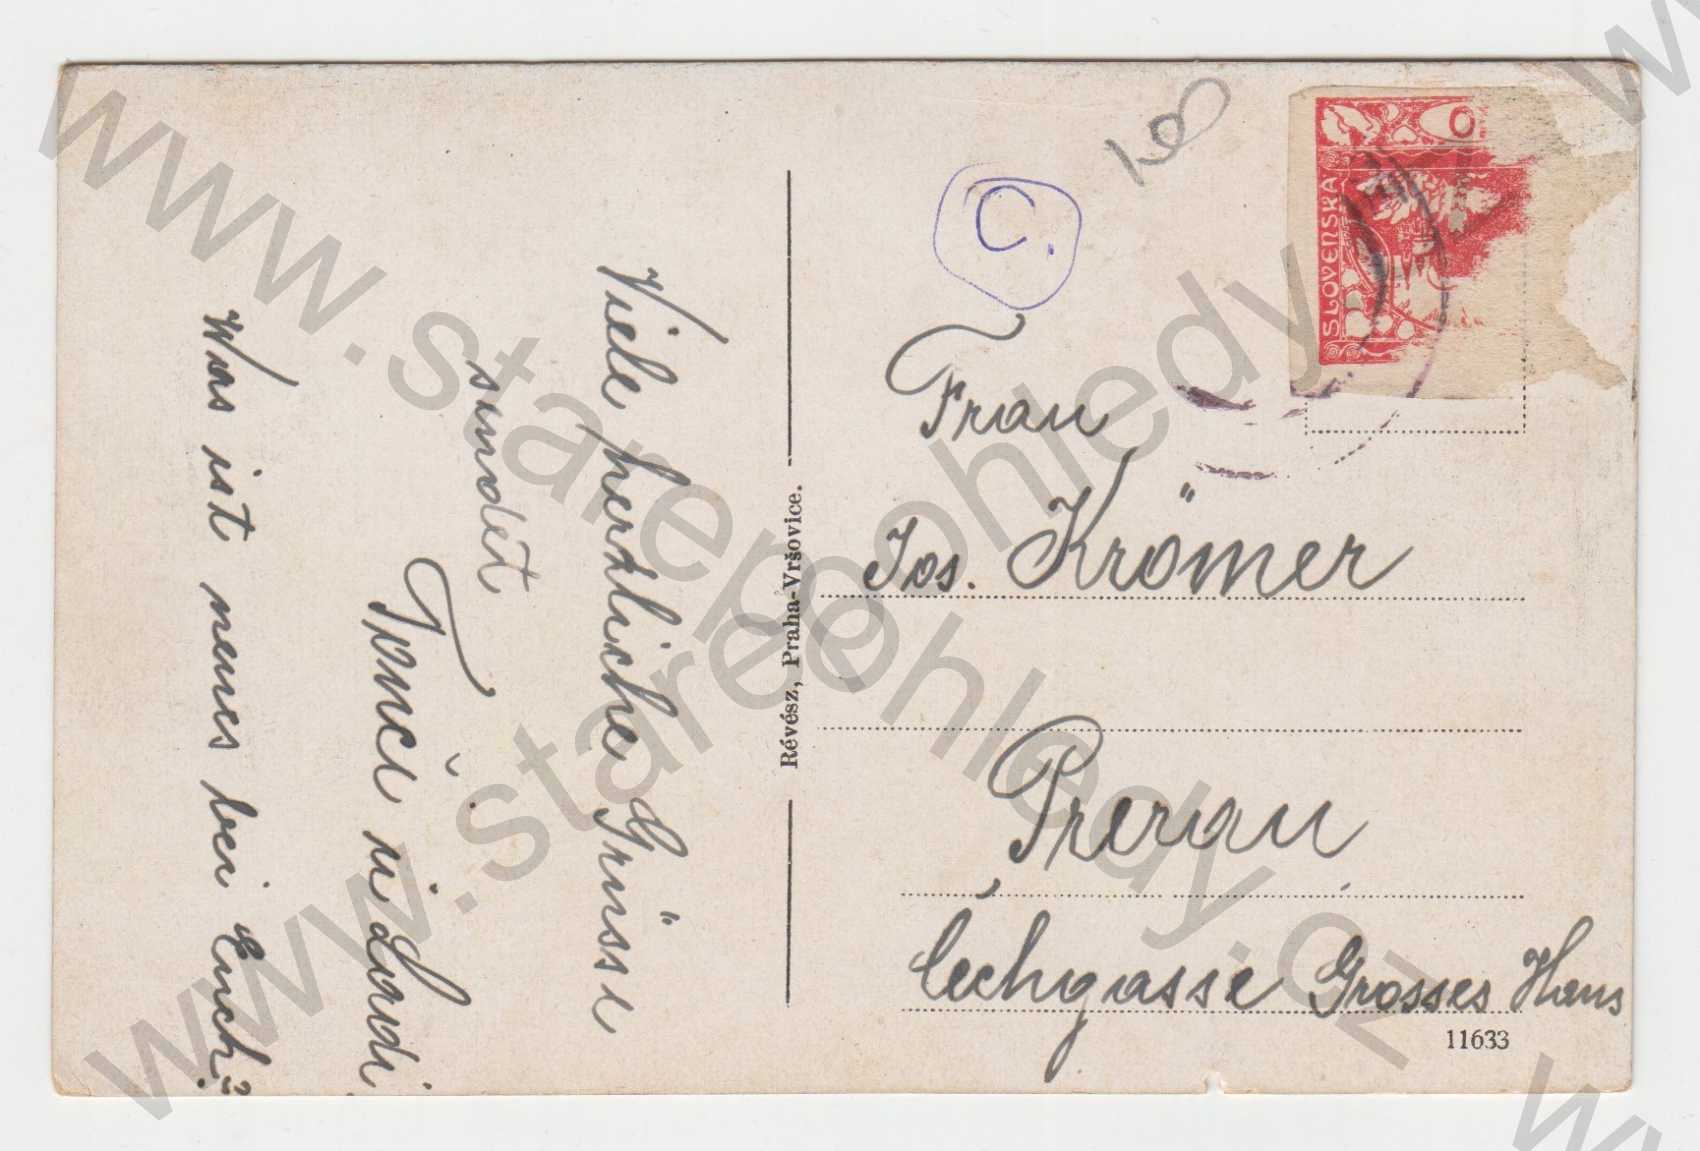 Viele herzliche Grüsse
sendet
Tonči u Ludi
Was ist neues bei Euch?
Révész, Praha-Vršovice.
C.
SLOVENSKA
Frau
Jos. Krömer
Prerau
Čechgasse Grosses Haus
11633
www.starepohledy.cz
www.starepohledy.cz